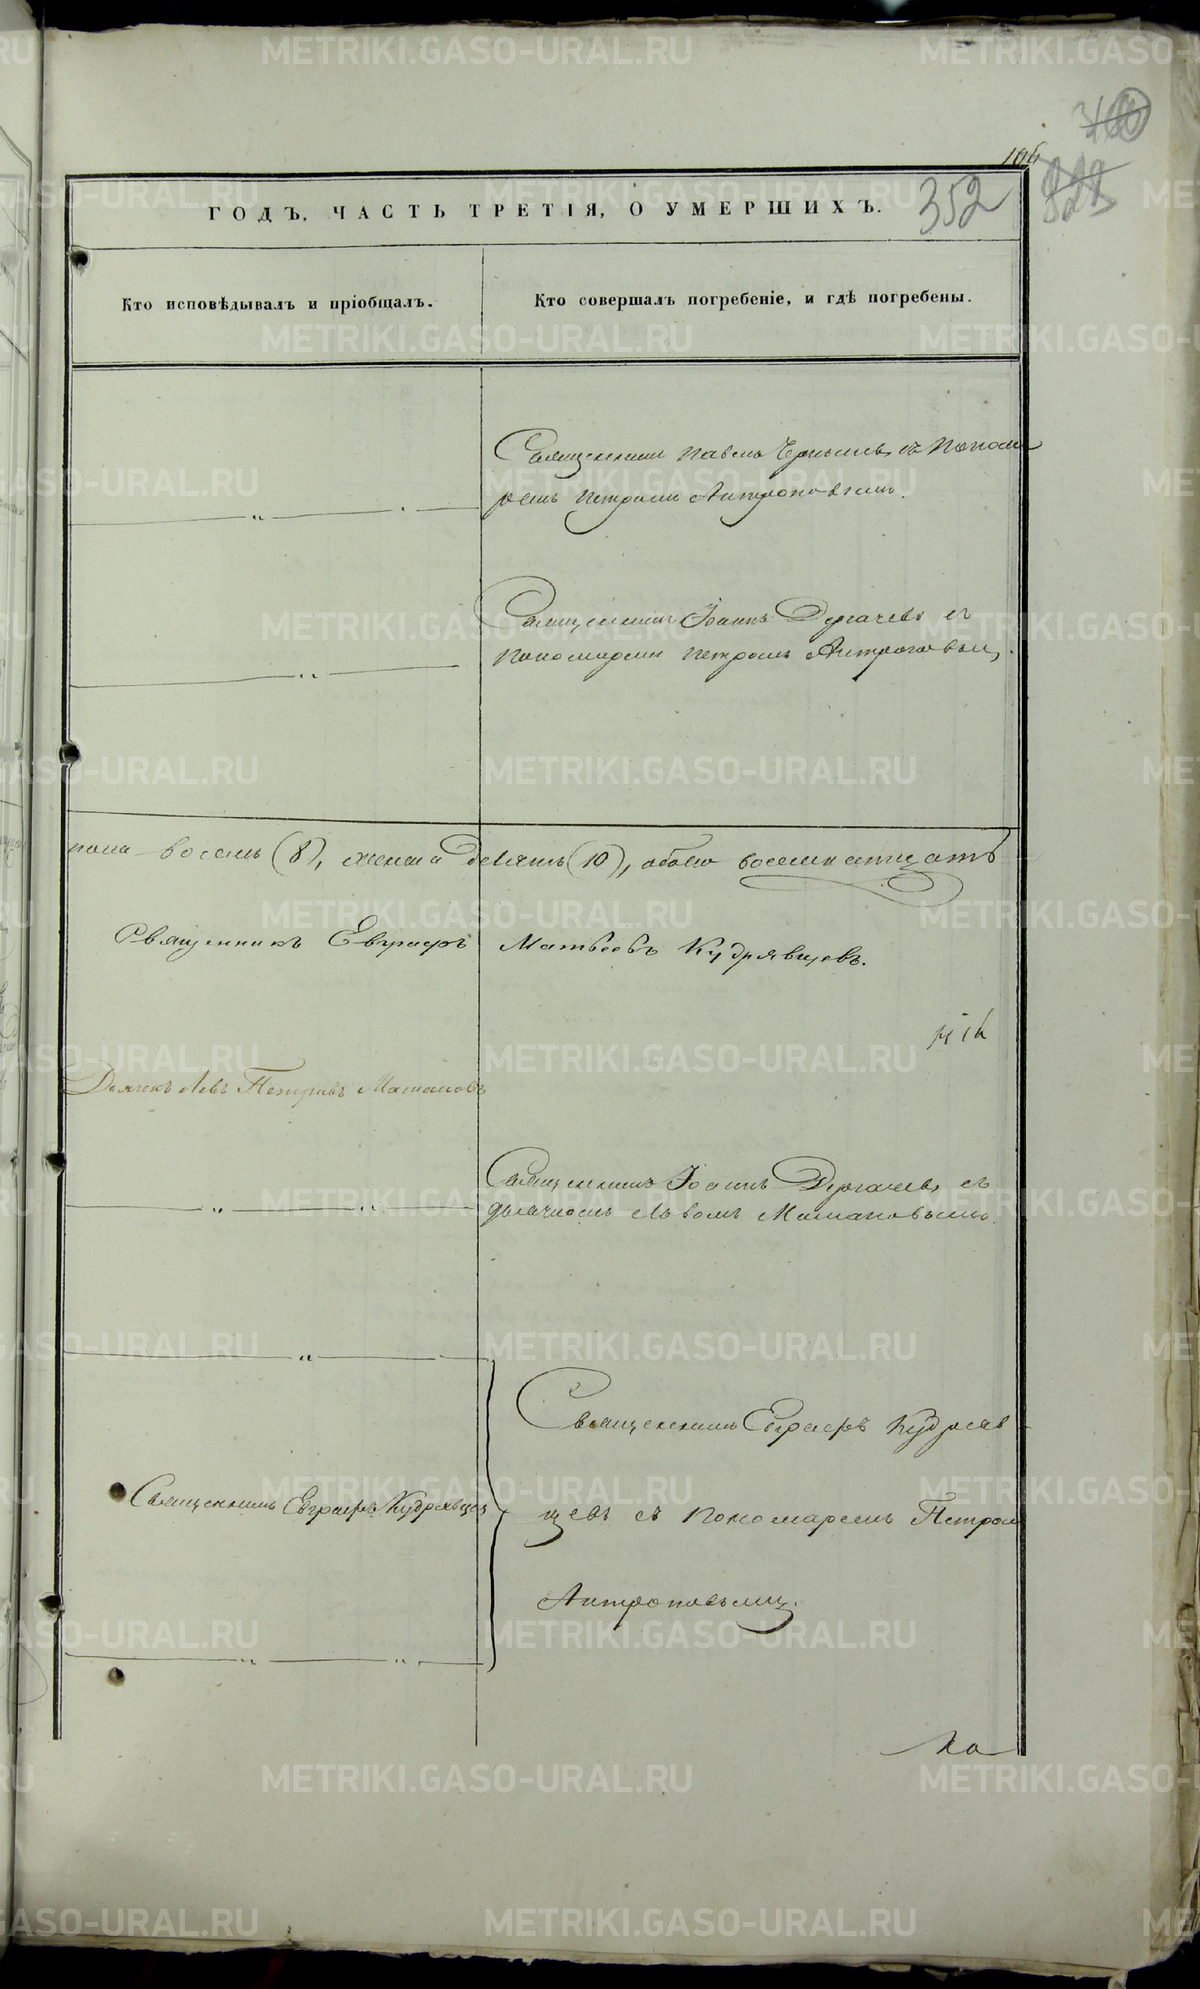 106
352
ГОДЪ, ЧАСТЬ ТРЕТІЯ, О УМЕРШИХЪ.
Кто исповѣдывалъ и пріобщалъ.
Кто совершалъ погребеніе, и гдѣ погребены.
Священникъ Павелъ с Понома
ремъ Петромъ Антроповымъ.
Священникъ Іоаннъ Дергачевъ съ
пономаремъ Петромъ Антроповымъ.
пола восемь (8), женска девять (10), обоего восемнатцать
Священникъ Евграфъ Матвѣевъ Кудрявцевъ.
Дьячекъ Левъ Петровъ Мамановъ
Священникъ Іоаннъ Дергачевъ съ
дьячкомъ Львомъ Мамановымъ.
Священникъ Евграфъ Кудряв
Священникъ Евграфъ Кудрявцевъ
цевъ съ Пономаремъ Петромъ
Антроповымъ.
METRIKI.GASO-URAL.RU